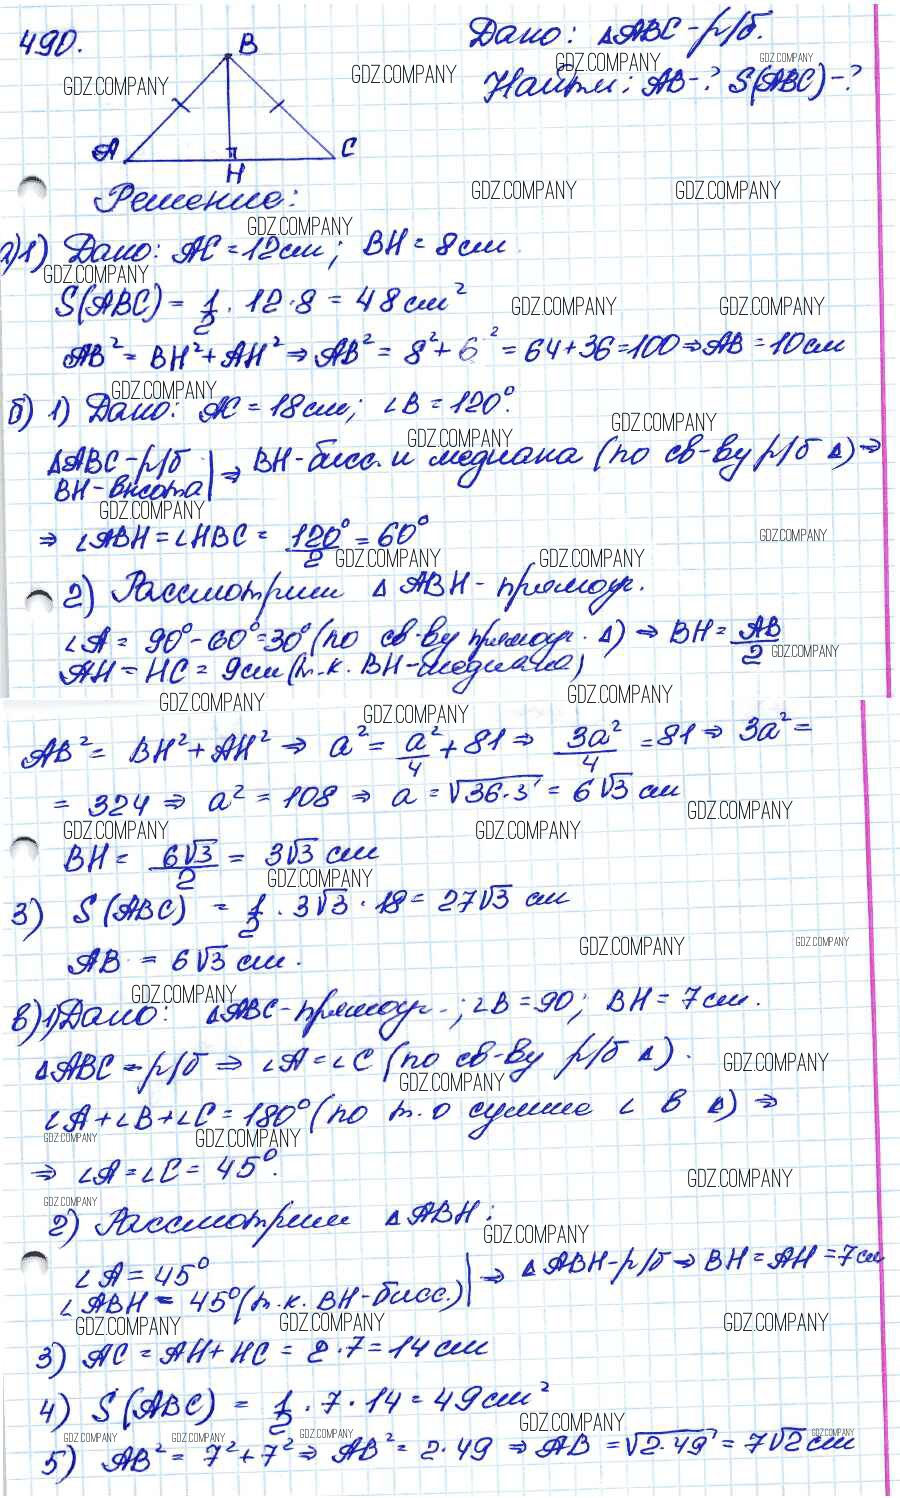 490.
B
A
H
C
Дано: △ABC-р/б.
Найти: AB-? S(ABC)-?
GDZ.COMPANY
Решение:
а)1) Дано: AC = 12см; BH = 8см
S(ABC) = 1/2 · 12·8 = 48см²
AB² = BH² + AH² ⇒ AB² = 8² + 6² = 64+36=100 ⇒ AB = 10см
б) 1) Дано: AC = 18см; ∠B = 120°.
△ABC-р/б
BH-высота | ⇒ BH-бисс. и медиана (по св-ву р/б △) ⇒
⇒ ∠ABH = ∠HBC = 120°/2 = 60°
2) Рассмотрим △ ABH- прямоуг.
∠A = 90°-60°=30° (по св-ву прямоуг. △) ⇒ BH = AB/2
AH = HC = 9см (т.к. BH-медиана)
AB² = BH² + AH² ⇒ a² = a²/4 + 81 ⇒ 3a²/4 = 81 ⇒ 3a² =
= 324 ⇒ a² = 108 ⇒ a = √36·3 = 6√3 см
BH = 6√3/2 = 3√3 см
3) S(ABC) = 1/2 · 3√3 · 18 = 27√3 см
AB = 6√3 см.
в)1)Дано: △ABC-прямоуг.; ∠B = 90; BH = 7см.
△ABC-р/б ⇒ ∠A = ∠C (по св-ву р/б △).
∠A+∠B+∠C = 180° (по т. о сумме ∠ в △) ⇒
⇒ ∠A=∠C = 45°.
2) Рассмотрим △ABH:
∠A = 45°
∠ABH = 45° (т.к. BH-бисс.) | ⇒ △ABH-р/б ⇒ BH = AH = 7см
3) AC = AH + HC = 2·7 = 14см
4) S(ABC) = 1/2 · 7 · 14 = 49см²
5) AB² = 7²+7² ⇒ AB² = 2·49 ⇒ AB = √2·49 = 7√2 см